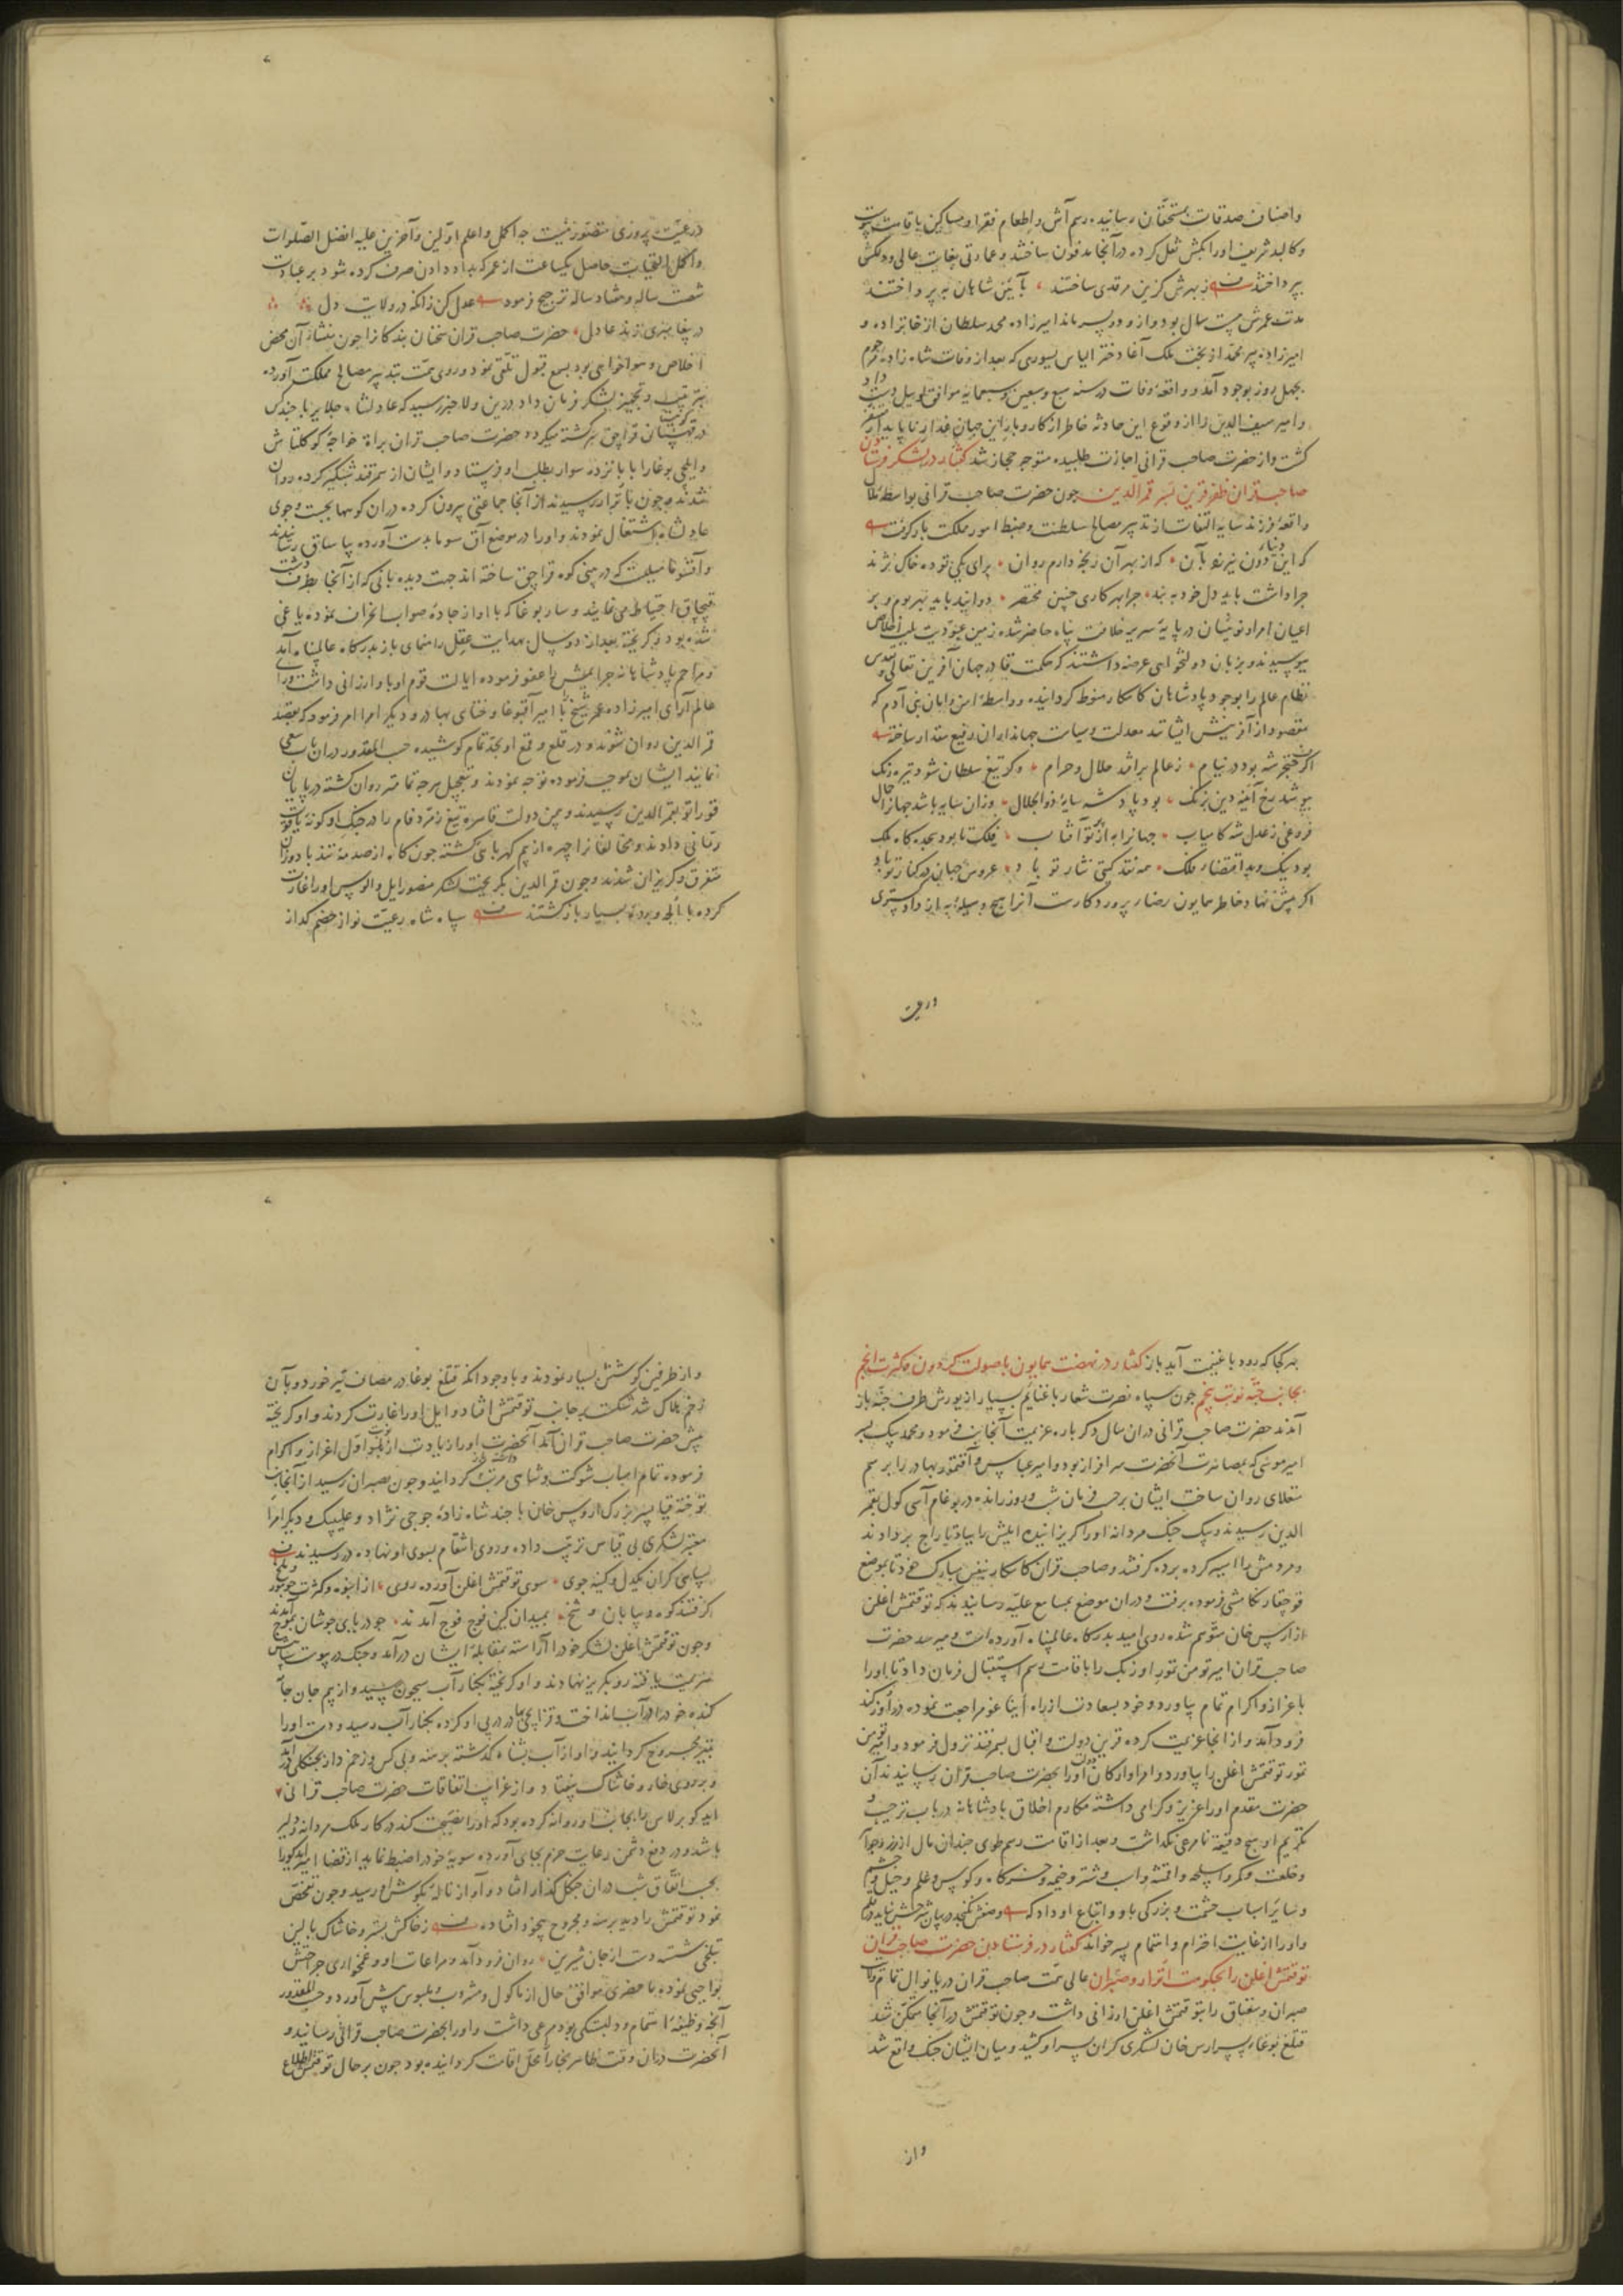 واصناف صدقات بمستحقان رسانیده رسم آش و اطعام فقرا و مساکین باقامت پیوست
و کالبد شریف اورا بکش نقل کرده در آنجا مدفون ساختند و عمارتی بغایت عالی و دلکش
بپرداختند بهرش گزین مرقدی ساختند بآیین شاهان بپرداختند
مدت عمرش بیست سال بود و ازو دو پسر ماند امیرزاده محمد سلطان از خانزاده و
امیرزاده پیر محمد از بخت ملک آغا دختر الیاس یسوری که بعد از وفات شاه زاده مرحوم
بچهل روز بوجود آمد و واقعهٔ وفات در سنه سبع و سبعین و سبعمایه موافق لوییل دست داد
و امیر سیف الدین را از وقوع این حادثه خاطر از کار و بار این جهان غدار ناپایدار متنفر
گشت و از حضرت صاحب قرانی اجازت طلبیده متوجه حجاز شد گفتار در لشکر فرستادن
صاحبقران ظفرقرین بسر قمرالدین چون حضرت صاحب قرانی بواسطهٔ
واقعهٔ فرزند سایه التفات از تدبیر مصالح سلطنت و ضبط امور مملکت بازگرفت
که این دنیاء دون نیرزد بآن که از بهر آن رنجه دارم روان برای یکی توده خاک نژند
چرا داشت باید دل خود به بند چرا بهر کاری چنین مختصر دوانید باید ببر بوم و بر
اعیان امرا و نوئینان در پایهٔ سریر خلافت پناه حاضر شده زمین عبودیت بلب اخلاص
ببوسیدند و بزبان دولتخواهی عرضه داشتند که حکمت قادر جهان آفرین تعالی و تقدس
نظام عالم را بوجود پادشاهان کامکار منوط گردانیده و واسطهٔ امن و امان بنی آدم که
مقصود از آفرینش ایشانند معدلت و سیاست جهانداران رفیع مقدار ساخته
اگر خنجر شه بود در نیام ز عالم برافتد حلال و حرام و گر تیغ سلطان شود تیره رنگ
بپوشد رخ آینه دین بزنگ بود پادشه سایهٔ ذوالجلال وزان سایه باشد جهانرا جمال
فروغی ز عدل شه کامیاب جهانرا به از پرتو آفتاب فلک تا بود بنده گاه ملک
بود نیک و بد اقتضاء ملک همه نقد گیتی نثار تو باد عروس جهان در کنار تو باد
اگر پیش نهاد خاطر همایون رضاء پروردگارست آنرا هیچ وسیله به از دادگستری
در عیت
در عیت پروری متصور نیست چه اکمل و اعلم اولین و آخرین علیه افضل الصلوات
و اکمل التحیات حاصل یکساعت از عمر که بداد دادن صرف کرده شود بر عبادت
شصت ساله و هفتاد ساله ترجیح فرمود عدل کن زانکه در ولایت دل
در پیغامبری زند عادل حضرت صاحب قران سخنان بندگان را چون منشاء آن محض
اخلاص و هواخواهی بود بسمع قبول تلقی نمود و روی همت بتدبیر مصالح مملکت آورده
بترتیب و تجهیز لشکر فرمان داد درین ولا خبر رسید که عادلشاه جلایر با چند کس
در قراچق سرگشته میگردد حضرت صاحب قران برات خواجهٔ کوکلتاش
و ایلچی بوغا را با پانزده سوار بطلب او فرستاد و ایشان از سمرقند شبگیر کرده روان
شدند چون باترار رسیدند از آنجا جماعتی بیرون کرده در آن کوهها بجست و جوی
عادلشاه اشتغال نمودند و اورا در موضع آق سوما بدست آورده بیاساق رسانیدند
و آقسوما میلیست که در بینی کوه قراچق ساخته اند جهت دیده بانی که از آنجا بطرف دشت
قبچاق احتیاط می نمایند و ساربوغا که با او از جادهٔ صواب انحراف نموده یاغی
شده بود و گریخته بعد از دو سال بهدایت عقل راهنمای باز بدرگاه عالمپناه آمد
و مراحم پادشاهانه جرایمش را عفو فرموده ایالت قوم او باو ارزانی داشت و رای
عالم آرای امیرزاده عمر شیخ را با امیر آقبوغا و ختای بهادر و دیگر امرا امر فرمود که بقصد
قمرالدین روان شوند و در قلع و قمع او بجد تمام کوشیده حسب المقدور در آن باب سعی
نمایند ایشان بموجب فرموده توجه نمودند و بتعجیل هرچه تمامتر روان گشته در بیابان
قوراتو بقمرالدین رسیدند و بیمن دولت قاهره تیغ زمرد فام را در جنگ او گونهٔ یاقوت
رمانی دادند و مخالفان را چهره از بیم کهربای گشته چون کاه از صدمهٔ تندباد وزان
متفرق و گریزان شدند و چون قمرالدین بگریخت لشکر منصور ایل و الوس اورا غارت
کرده با اُلجه و بردهٔ بسیار بازگشتند سپاه شاه رعیت نواز خصم گداز
بهر کجا که رود با غنیمت آید باز گفتار در نهضت همایون با صولت گردون و کثرت انجم
بجانب جته نوبت پنجم چون سپاه نصرت شعار با غنایم بسیار از یورش طرف جته باز
آمدند حضرت صاحب قرانی در آن سال دگر باره عزیمت آنجانب فرمود و محمد بیک پسر
امیر موسی که بمصاهرت آنحضرت سرافراز بود و امیر عباس و آقتمور بهادر را برسم
منقلای روان ساخت ایشان بر حسب فرمان شب و روز رانده در بوغام آسی کول بقمر
الدین رسیدند و بیک جنگ مردانه اورا گریزانیده ایلش را بباد تاراج بردادند
و مردمش را اسیر کرده برده گرفتند و صاحب قران کامکار بنفس مبارک خود تا بموضع
قوچقار تکامشی فرموده برفت و در آن موضع بمسامع علیه رسانیدند که توقتمش اغلن
از ارس خان متوهم شده روی امید بدرگاه عالمپناه آورده است و میرسد حضرت
صاحب قران امیر تومن تمور اوزبک را باقامت رسم استقبال فرمان داد تا اورا
با عزاز و اکرام تمام بیاورد و خود بسعادت از راه ایناغو مراجعت نموده در اوزکند
فرود آمد و از آنجا عزیمت کرده قرین دولت و اقبال بسمرقند نزول فرمود و امیر تومن
تمور توقتمش اغلن را بیاورد و امرا و ارکان دولت اورا بحضرت صاحب قران رسانیدند آن
حضرت مقدم اورا عزیز و گرامی داشته مکارم اخلاق پادشاهانه در باب ترحیب و
تکریم او هیچ دقیقه نامرعی نگذاشت و بعد از اقامت رسم طوی چندان مال از زر و جواهر
و خلعت و کمر و اسلحه و اقمشه و اسب و شتر و خیمه و خرگاه و کوس و علم و خیل و حشم
و سایر اسباب حشمت و بزرگی باو و اتباع او داد که وصفش نگنجد در بیان شرحش نیاید در قلم
و اورا از غایت احترام و اهتمام پسر خواند گفتار در فرستادن حضرت صاحب قران
توقتمش اغلن را بحکومت اترار و صبران عالی همت صاحب قران دریا نوال تمام ولایت
صبران و سغناق را بتوقتمش اغلن ارزانی داشت و چون توقتمش در آنجا متمکن شد
قتلغ بوغاء پسر ارس خان لشکری گران بسر او کشید و میان ایشان جنگ واقع شد
و از
و از طرفین کوشش بسیار نمودند و با وجود آنکه قتلغ بوغا در مصاف تیر خورد و بآن
زخم هلاک شد شکست بر جانب توقتمش افتاد و ایل اورا غارت کردند و او گریخته
پیش حضرت صاحب قران آمد آنحضرت اورا زیادت از نوبت اول اعزاز و اکرام
فرموده تمام اسباب شوکت و شاهی مرتب گردانید و چون بصبران رسید از آنجانب
توخته قیا پسر بزرگ اروس خان با چند شاه زادهٔ جوجی نژاد و علیبیک و دیگر امراء
معتبر لشکری بی قیاس ترتیب داده و روی انتقام بسوی او نهاده در رسیدند
سپاهی گران یکدل و کینه جوی سوی توقتمش اغلن آورده روی از انبوه و کثرت چو مور و ملخ
گرفتند کوه و بیابان و شخ بمیدان کین فوج فوج آمدند چو دریای جوشان بموج آمدند
و چون توقتمش اغلن لشکر خود را آراسته بمقابلهٔ ایشان درآمد و جنگ در پیوست سپاهش
هزیمت یافته رو بگریز نهادند و او گریخته بکنار آب سیحون رسید و از بیم جان جامه
کنده خود را در آب انداخت و قزانچی بهادر در پی او کرده بکنار آب رسید و دست اورا
بتیر مجروح گردانید و او از آب بشناه گذشته برهنه و بی کس و زخم دار بجنگلی درآمد
و بر روی خار و خاشاک بیفتاد و از غرایب اتفاقات حضرت صاحب قرانی
ایدکو برلاس را بجانب او روانه کرده بود که اورا نصیحت کند در کار ملک مردانه و دلیر
باشد و در دفع دشمن رعایت حزم بجای آورده سویهٔ خود را ضبط نماید از قضا امیر ایدکو را
بحسب اتفاق شب در آن جنگل گذار افتاد و آواز نالهٔ بگوش او رسید و چون تفحص
نمود توقتمش را دید برهنه و مجروح بیخود افتاده ز خاکش بستر و خاشاک بالین
بتلخی شسته دست از جان شیرین روان فرود آمد و مراعات او و غمخواری جراحتش
بواجبی نموده ما حضری موافق حال از ماکول و مشروب و ملبوس پیش آورد و حسب المقدور
آنچه وظیفهٔ اهتمام و دلبستگی بود مرعی داشت و اورا بحضرت صاحب قرانی رسانید و
آنحضرت در آن وقت ظاهر بخارا محل اقامت گردانیده بود چون بر حال توقتمش اطلاع